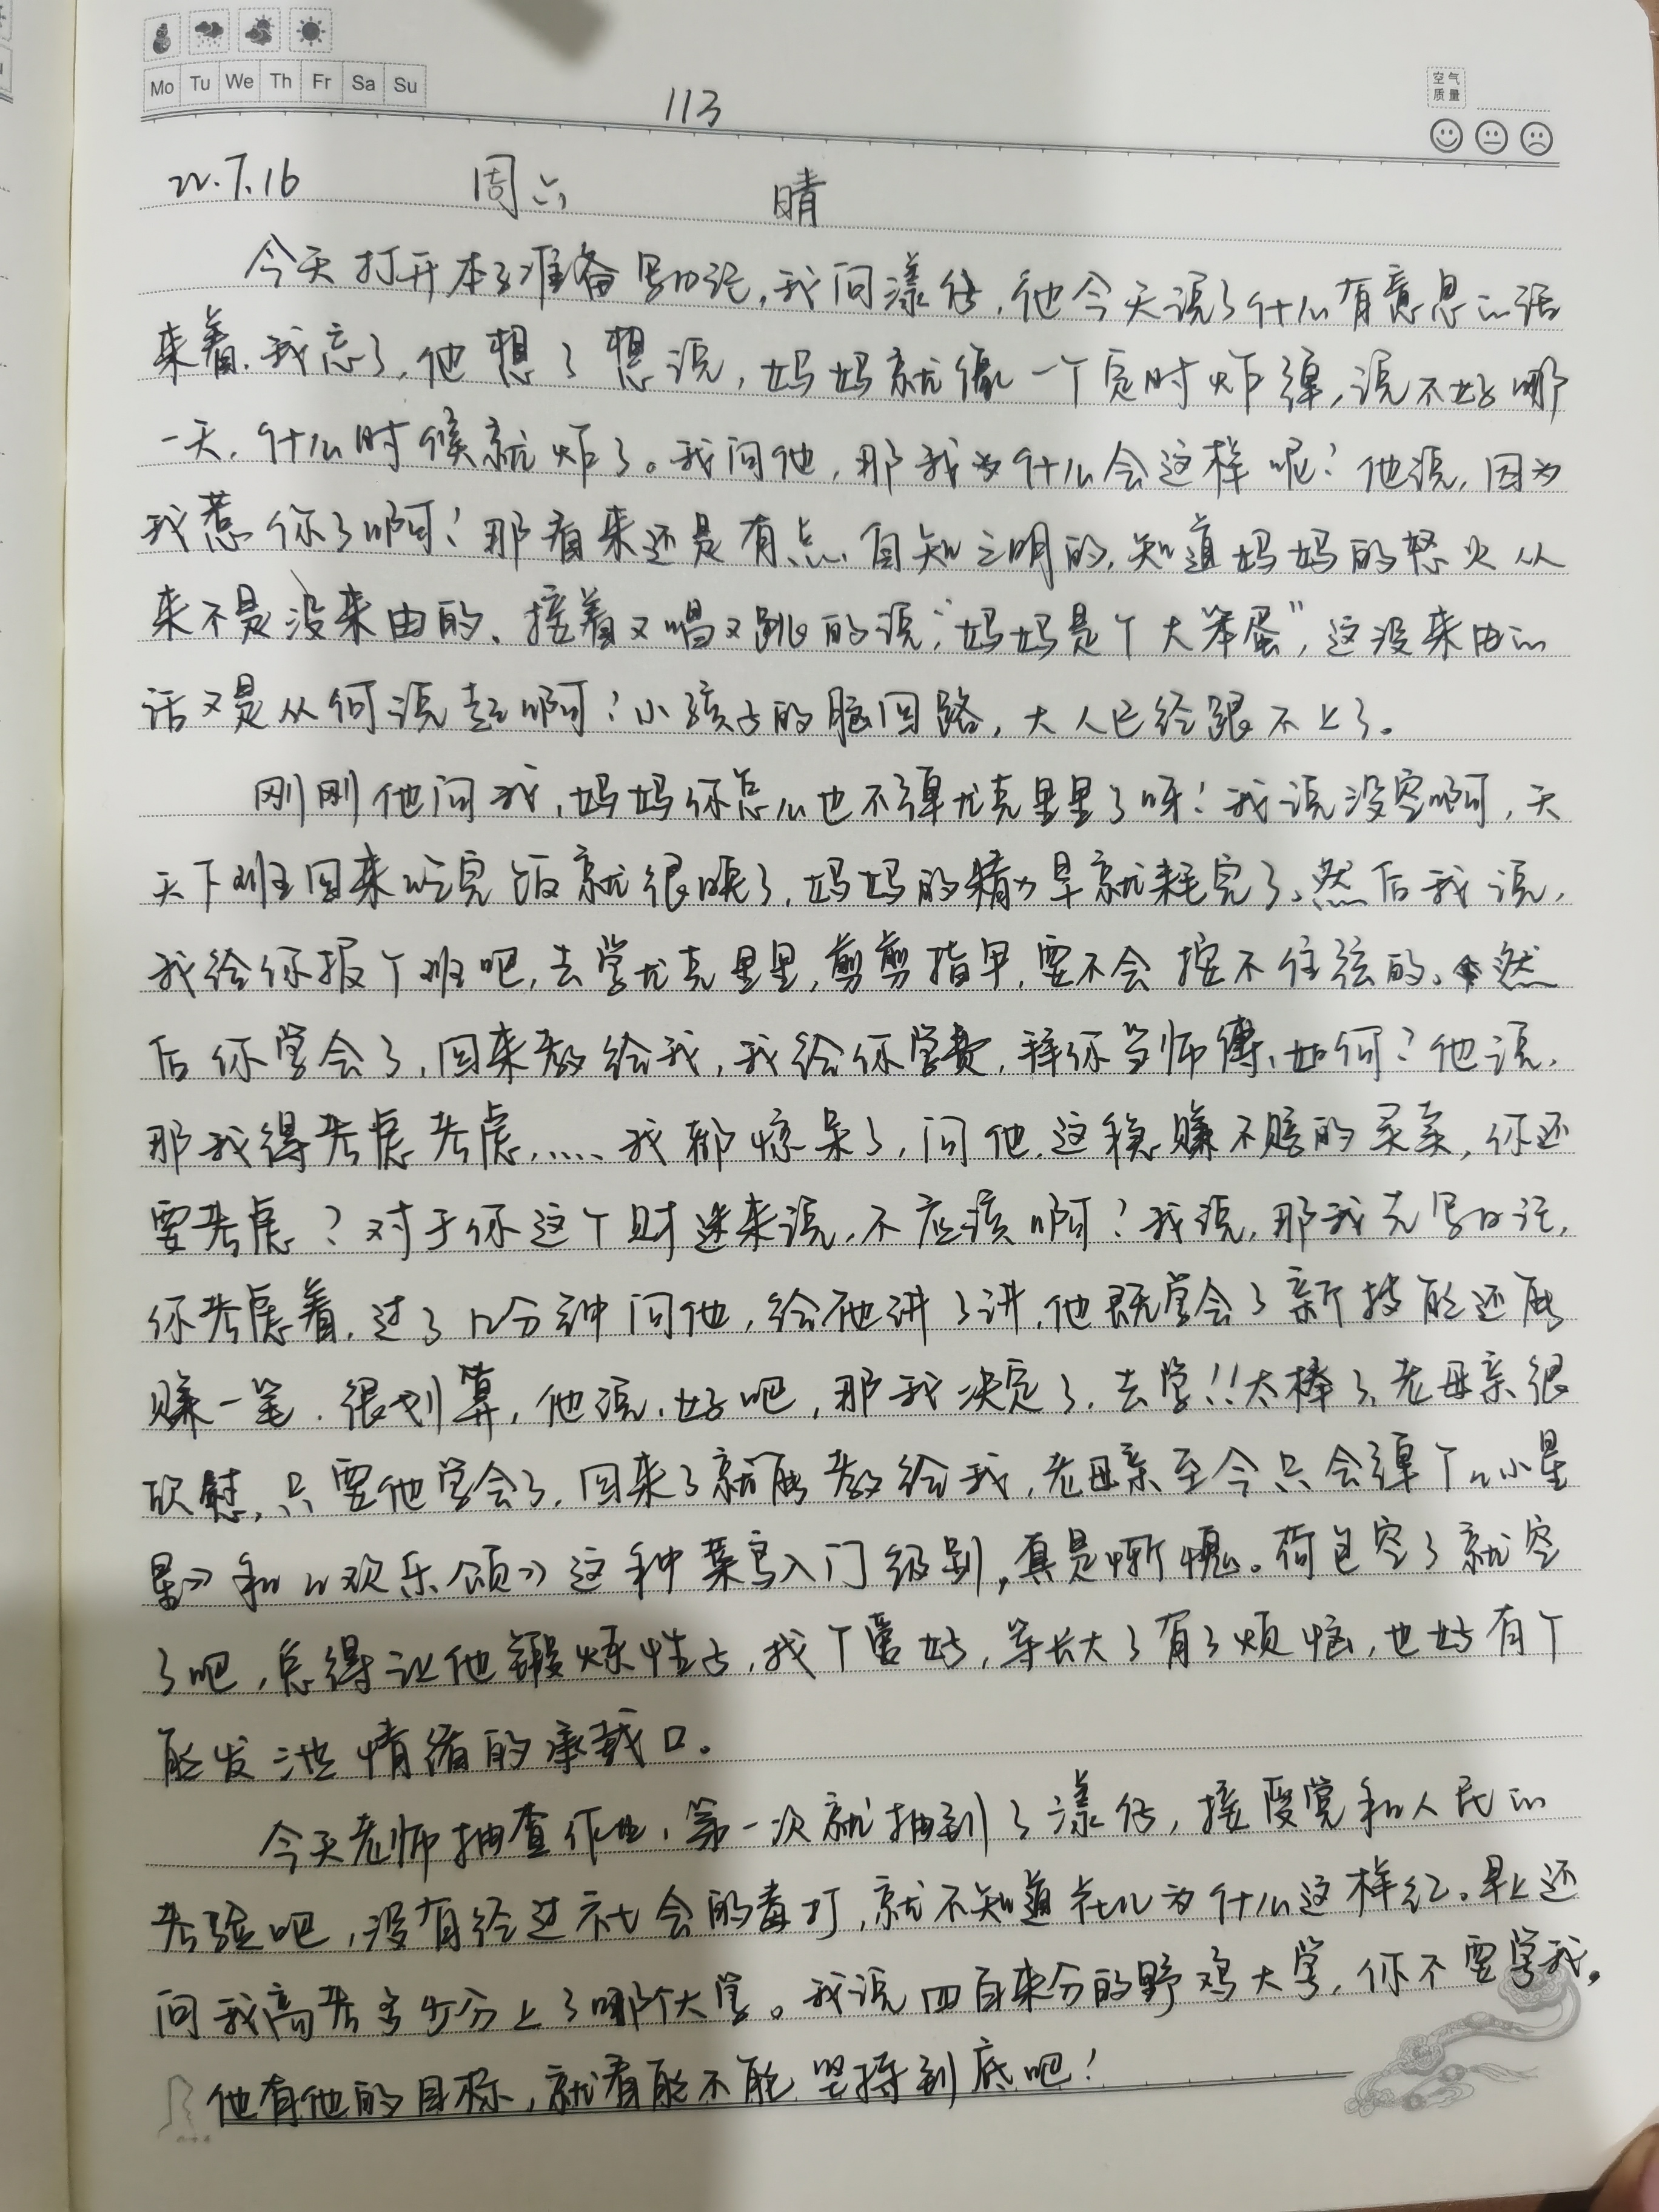 Mo Tu We Th Fr Sa Su
113
空气
质量
22.7.16 周六 晴
今天打开本子准备写日记,我问漾倍,他今天说了什么有意思的话
来着,我忘了,他想了想说,妈妈就像一个定时炸弹,说不好哪
一天,什么时候就炸了。我问他,那我为什么会这样呢?他说,因为
我惹你了啊!那看来还是有点自知之明的,知道妈妈的怒火从
来不是没来由的。接着又唱又跳的说,“妈妈是个大笨蛋”,这没来由的
话又是从何说起啊?小孩子的脑回路,大人已经跟不上了。
刚刚他问我,妈妈你怎么也不弹尤克里里了呀!我说没空啊,天
天下班回来吃完饭就很晚了,妈妈的精力早就耗完了。然后我说,
我给你报个班吧,去学尤克里里,剪剪指甲,要不会按不住弦的。然
后你学会了,回来教给我,我给你学费,拜你当师傅,如何?他说,
那我得考虑考虑……我都惊呆了,问他,这稳赚不赔的买卖,你还
要考虑?对于你这个财迷来说,不应该啊?我说,那我先写日记,
你考虑着,过了几分钟问他,给他讲了讲,他既学会了新技能还能
赚一笔,很划算,他说,好吧,那我决定了,去学!!太棒了,老母亲很
欣慰,只要他学会了,回来了就能教给我,老母亲至今只会弹个《小星
星》和《欢乐颂》这种菜鸟入门级别,真是惭愧。荷包空了就空
了吧,总得让他锻炼性子,找个爱好,等长大了有了烦恼,也好有个
能发泄情绪的承载口。
今天老师抽查作业,第一次就抽到了漾倍,接受党和人民的
考验吧,没有经过社会的毒打,就不知道花儿为什么这样红。早上还
问我高考多少分上了哪个大学。我说四百来分的野鸡大学,你不要学我,
他有他的目标,就看能不能坚持到底吧!